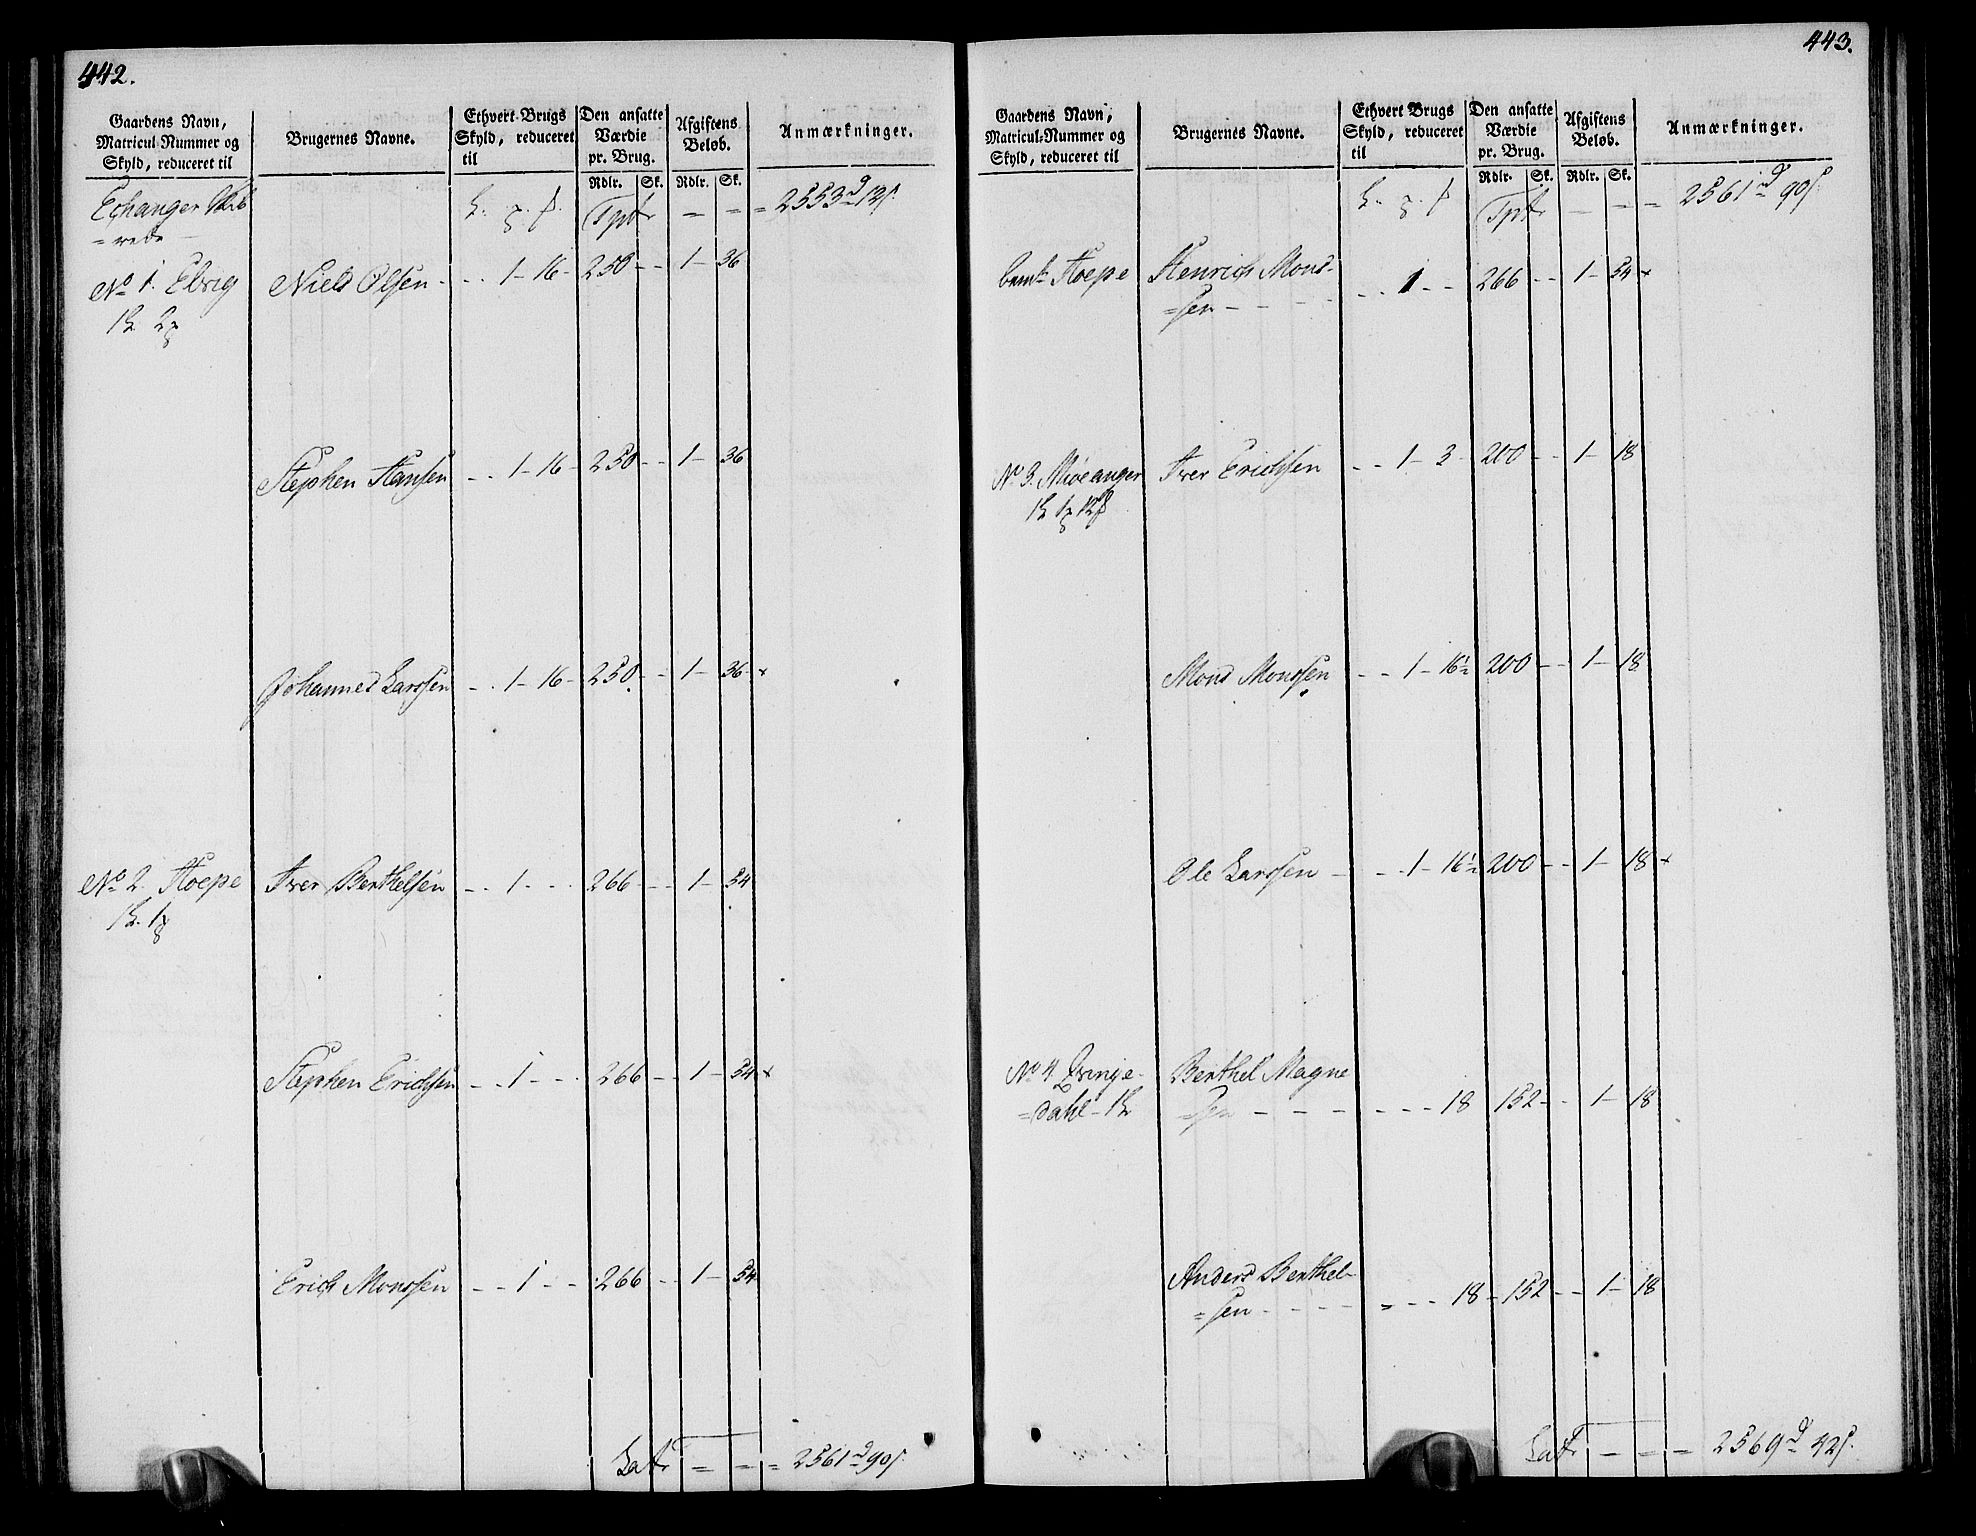 442.
Gaardens Navn,
Matricul-Nummer og
Skyld, reduceret til
Brugernes Navne.
Ethvert Brugs
Skyld, reduceret
til
Den ansatte
Værdie
pr. Brug.
Rdlr. Sk.
Afgiftens
Beløb.
Rdlr. Sk.
Anmærkninger.
Echanger Skib
=rede
Tpt 2553 d 12 s.
No 1. Elvig Niels Olsen - 1 - 16 - 250 - - 1 - 36
1 L 2
Stephen Hansen - - 1 - 16 - 250 - - 1 - 36
Johannes Larssen - - 1 - 16 - 250 - - 1 - 36
No 2. Hoepe Iver Berthelsen - - 1 - - - 266 - - 1 - 54
1 L. 1
Stephen Erichsen - - 1 - - - 266 - - 1 - 54
Erich Monssen - - 1 - - 266 - - 1 - 54
Lat - - = 2561 d 90 s.
443.
Gaardens Navn,
Matricul-Nummer og
Skyld, reduceret til
Brugernes Navne.
Ethvert Brugs
Skyld, reduceret
til
Den ansatte
Værdie
pr. Brug.
Rdlr. Sk.
Afgiftens
Beløb.
Rdlr. Sk.
Anmærkninger.
Tpt - - = 2561 d 90 s.
Hoepe Henrich Mons-
=sen - - - - - - 1 - - 266 - - 1 - 54
No 3. Miøeanger Iver Erichsen - - 1 - 3 - 200 - - 1 - 18
1 L 1 12
Mons Monssen - - 1 - 16½ 200 - - 1 - 18
Ole Larssen - - - 1 - 16½ 200 - - 1 - 18
No 4 Qvinge- Berthel Magne
=dahl - 1 L =sen - - - - - - 18 152 - - 1 - 18
Anders Berthel-
=sen - - - - - - - 18 - 152 - - 1 - 18
Lat - - - 2569 d 42 s.